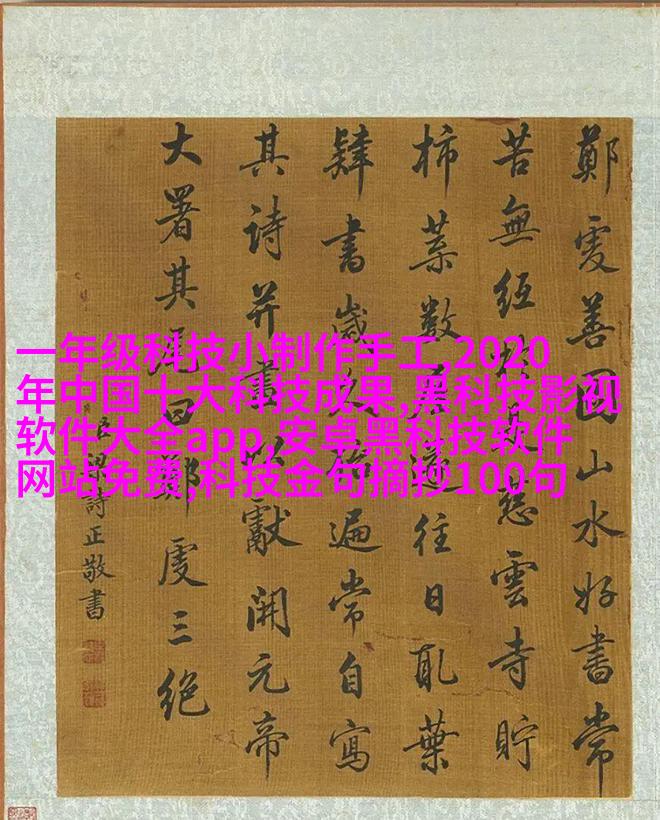 一年级科技小制作手工,2020
年中国十大科技成果,黑科技影视
软件大全app,安卓黑科技软件
网站免费,科技金句摘抄100句
鄭虔善圖山水好書常
苦無紙於是慈雲寺貯
柿葉數屋遂往日取葉
肄書歲久殆遍常自寫
其詩并畫以獻開元帝
大署其尾曰鄭虔三絕
臣梁詩正敬書